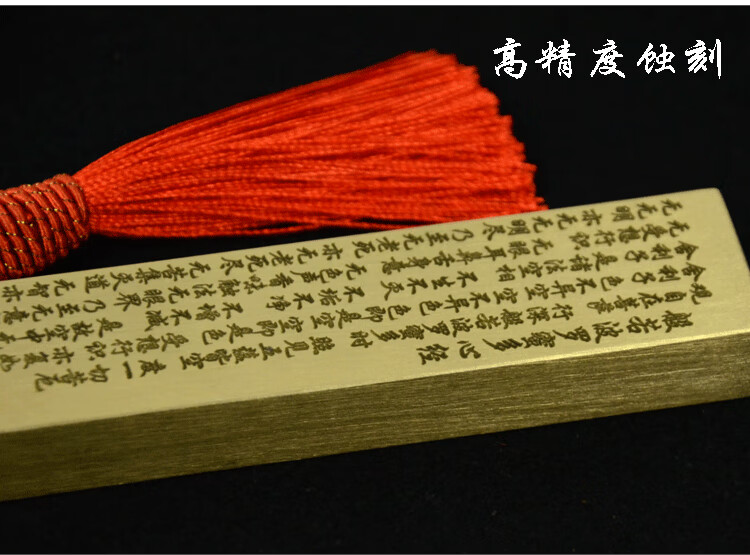 高精度蚀刻
般若波罗蜜多心经
观自在菩萨行深般若波罗蜜多时照见五蕴皆空度一切苦厄
舍利子色不异空空不异色色即是空空即是色受想行识亦复如
舍利子是诸法空相不生不灭不垢不净不增不减是故空中无
无受想行识无眼耳鼻舌身意无色声香味触法无眼界乃至无意
无无明亦无无明尽乃至无老死亦无老死尽无苦集灭道无智亦